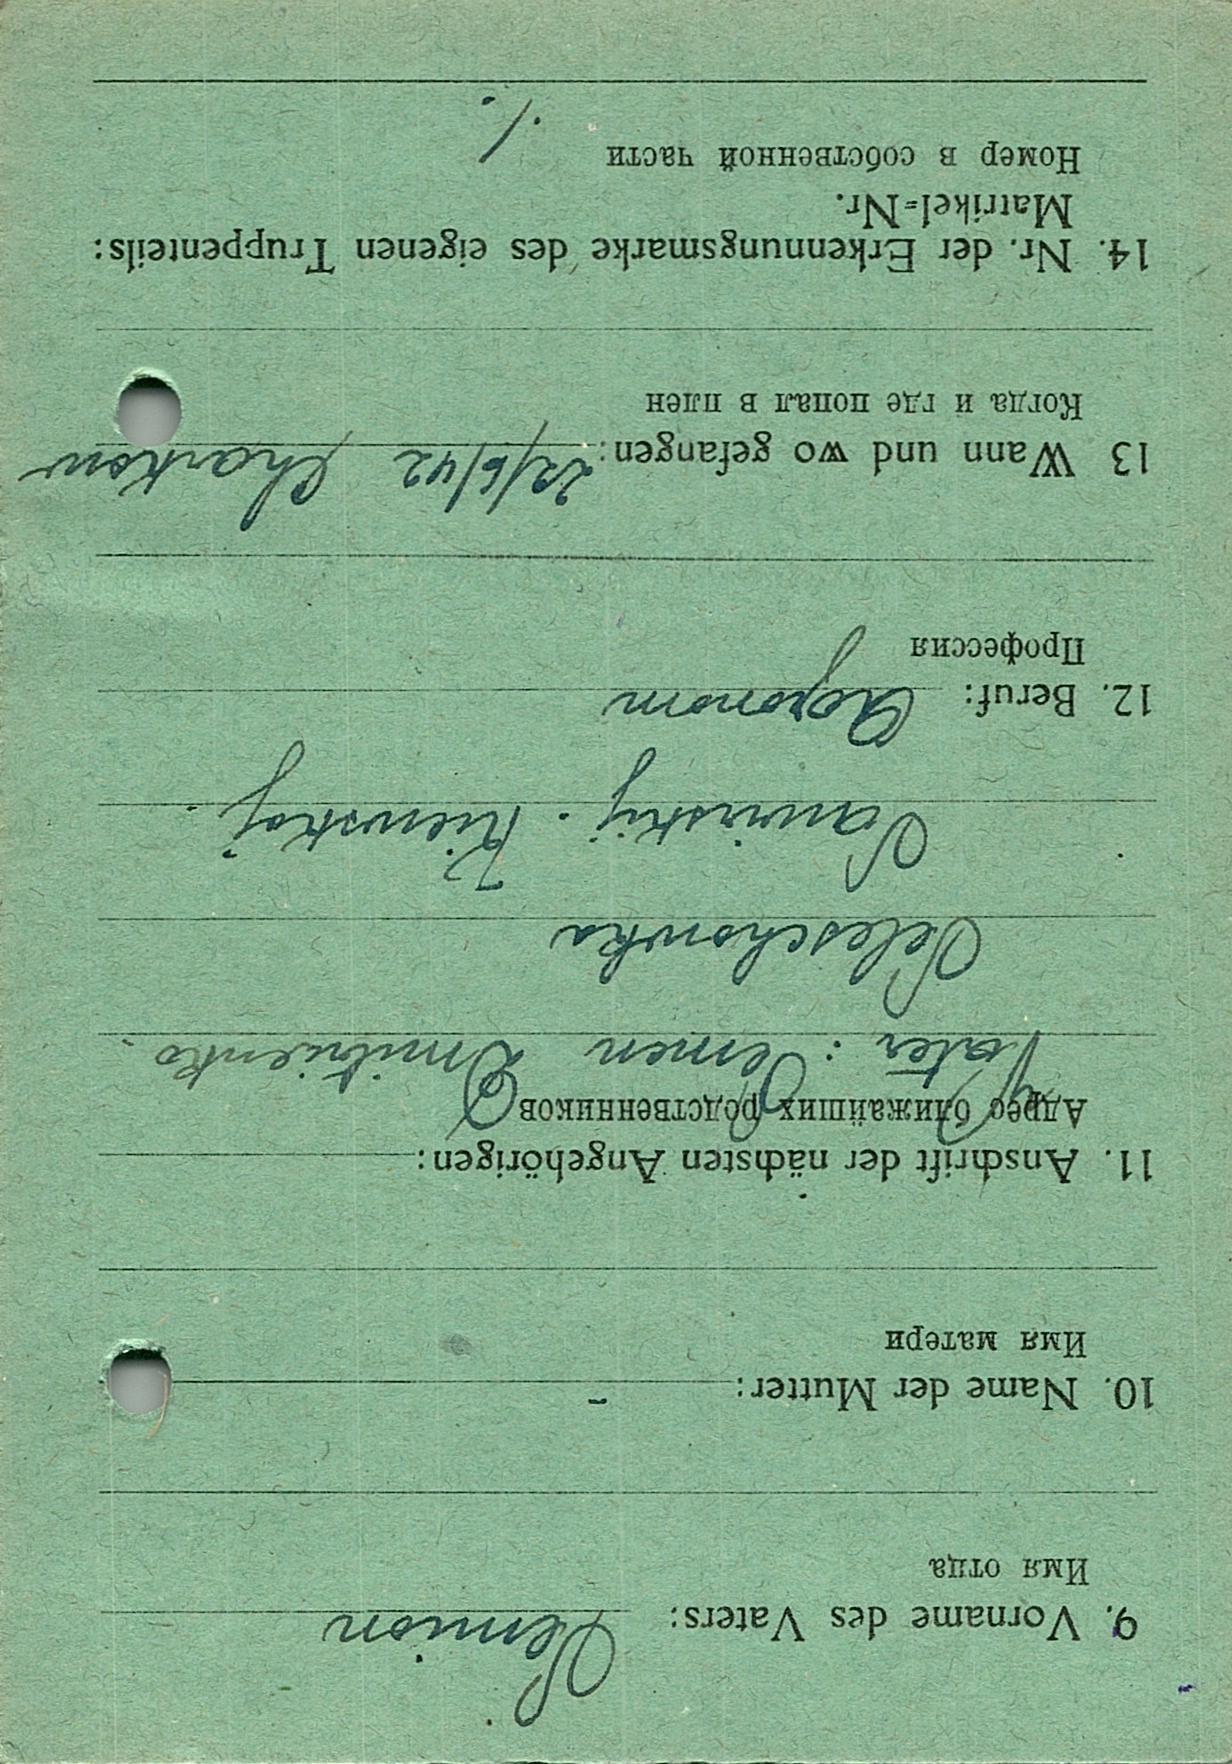 9. Vorname des Vaters: Semion
Имя отца
10. Name der Mutter: -
Имя матери
11. Anschrift der nächsten Angehörigen:
Адрес ближайших родственников
Vater: Semen Dmitrienko.
Peleschowka
Kiewskoj.
12. Beruf: Agronom
Профессия
13 Wann und wo gefangen: 22/6/42 Charkow
Когда и где попал в плен
14. Nr. der Erkennungsmarke des eigenen Truppenteils:
Matrikel=Nr.
Номер в собственной части ./.